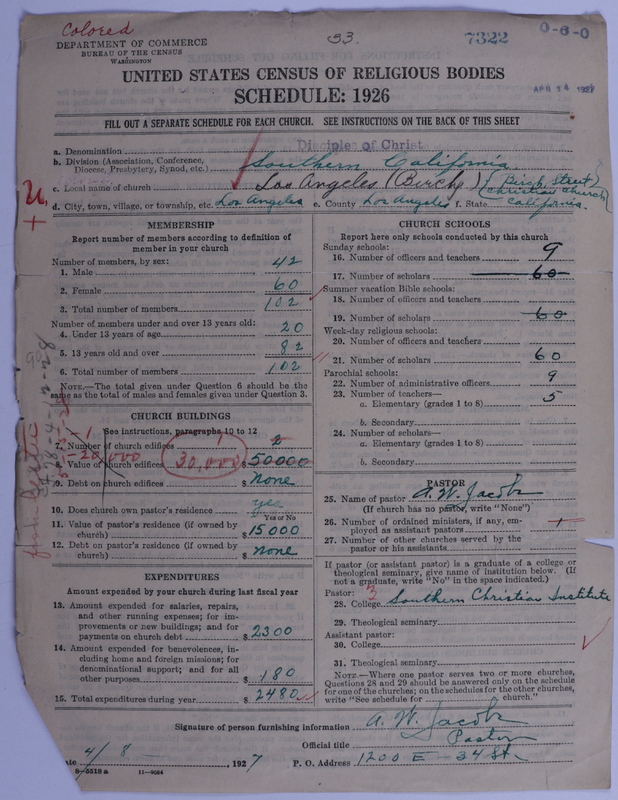 Colored
53.
7322
0-6-0
DEPARTMENT OF COMMERCE
BUREAU OF THE CENSUS
WASHINGTON
UNITED STATES CENSUS OF RELIGIOUS BODIES
SCHEDULE: 1926
APR 14 1927
FILL OUT A SEPARATE SCHEDULE FOR EACH CHURCH. SEE INSTRUCTIONS ON THE BACK OF THIS SHEET
a. Denomination Disciples of Christ
b. Division (Association, Conference, Diocese, Presbytery, Synod, etc.) Southern California
c. Local name of church Los Angeles (Birch) (Birch Street Christian Church)
d. City, town, village, or township, etc. Los Angeles e. County Los Angeles f. State California.
U
+
MEMBERSHIP
Report number of members according to definition of
member in your church
Number of members, by sex:
1. Male 42
2. Female 60
3. Total number of members 102
Number of members under and over 13 years old:
4. Under 13 years of age 20
5. 13 years old and over 82
6. Total number of members 102
NOTE.—The total given under Question 6 should be the
same as the total of males and females given under Question 3.
CHURCH BUILDINGS
See instructions, paragraphs 10 to 12
7. Number of church edifices 2 1
8. Value of church edifices $50000 30,000
-20,000
9. Debt on church edifices $ None
10. Does church own pastor's residence? yes
Yes or No
11. Value of pastor's residence (if owned by
church) $15000
12. Debt on pastor's residence (if owned by
church) $ None
EXPENDITURES
Amount expended by your church during last fiscal year
13. Amount expended for salaries, repairs,
and other running expenses; for im-
provements or new buildings; and for
payments on church debt $2300
14. Amount expended for benevolences, in-
cluding home and foreign missions; for
denominational support; and for all
other purposes $180
15. Total expenditures during year $2480
CHURCH SCHOOLS
Report here only schools conducted by this church
Sunday schools:
16. Number of officers and teachers 9
17. Number of scholars 60
Summer vacation Bible schools:
18. Number of officers and teachers
19. Number of scholars 60
Week-day religious schools:
20. Number of officers and teachers
21. Number of scholars 60
Parochial schools:
22. Number of administrative officers 9
23. Number of teachers—
a. Elementary (grades 1 to 8) 5
b. Secondary
24. Number of scholars—
a. Elementary (grades 1 to 8)
b. Secondary
PASTOR
25. Name of pastor A. W. Jacobs
(If church has no pastor, write "None")
26. Number of ordained ministers, if any, em-
ployed as assistant pastors 1
27. Number of other churches served by the
pastor or his assistants
If pastor (or assistant pastor) is a graduate of a college or
theological seminary, give name of institution below. (If
not a graduate, write "No" in the space indicated.)
Pastor: 3
28. College Southern Christian Institute
29. Theological seminary
Assistant pastor:
30. College
31. Theological seminary
NOTE.—Where one pastor serves two or more churches,
Questions 28 and 29 should be answered only on the schedule
for one of the churches; on the schedules for the other churches,
write "See schedule for church."
Signature of person furnishing information A. W. Jacobs
Official title Pastor
ate 4/8, 1927 P. O. Address 1200 E - 34 St.
8—5518a 11—9054